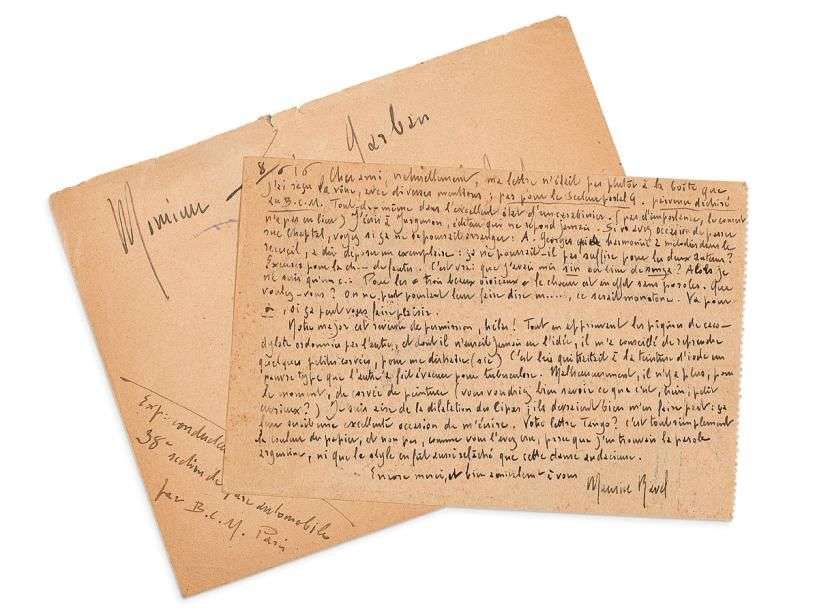 Monsieur Garban
8/6 16 Cher ami, naturellement, ma lettre n'était pas plutôt à la boîte que
j'ai reçu la vôtre, avec diverses mentions; pas pour le Secteur postal 9.
au B.C.M. Tout de même dans l'excellent état d'un (pas d'impotence, le courant
n'a pas eu lieu) J'écris à Jurgenson, éditeur qui ne répond jamais. Si vs avez occasion de passer
rue Chaptal, voyez si ça ne pourrait s'arranger: A. Georges qui a harmonisé 2 mélodies dans le
recueil, a dû déposer un exemplaire: ça ne pourrait-il pas suffire pour les deux autres?
Excusez pour la de fautes. C'est vrai que j'avais mis sin au lieu de ? Alors je
ne sais qu'un c.. Pour les "trois beaux oiseaux" le chœur est en effet sans paroles. Que
voulez-vous? On ne peut pourtant leur faire dire m....., ce serait monotone. Va pour
, si ça peut vous faire plaisir.
Notre major est revenu de permission, hélas! Tout en supprimant les piqûres de caco-
dylate ordonnées par l'autre, et dont il n'avait jamais eu l'idée, il m'a conseillé de reprendre
quelques petites corvées, pour me distraire (sic) C'est lui qui traitait à la teinture d'iode un
pauvre type que l'autre a fait évacuer pour tuberculose. Malheureusement, il n'y a plus, pour
le moment, de corvée de peinture (vous voudriez bien savoir ce que c'est, hein, petit
curieux?) Je suis aise de la dilatation du ; ils devraient bien m'en faire part: ça
leur serait une excellente occasion de m'écrire. Votre lettre Tango? c'est tout simplement
la couleur du papier, et non pas, comme vous l'avez cru, parce que j'en trouvais la parole
argentine, ni que le style en fût aussi relâché que cette danse audacieuse.
Encore merci, et bien amicalement à vous
Maurice Ravel
Exp: conducteur
38e section de parc automobile
par B.C.M. Paris